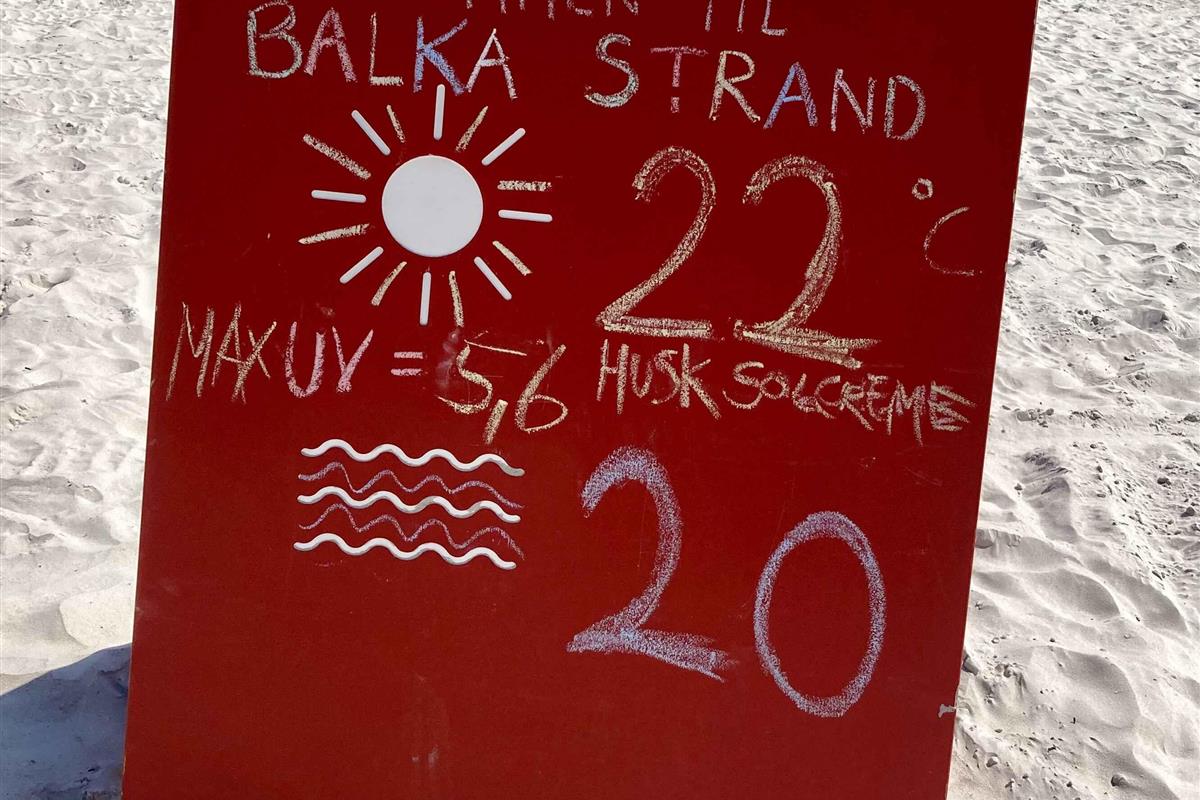 TIL
BALKA STRAND
22 °C
MAX UV = 5,6
HUSK SOLCREME
20